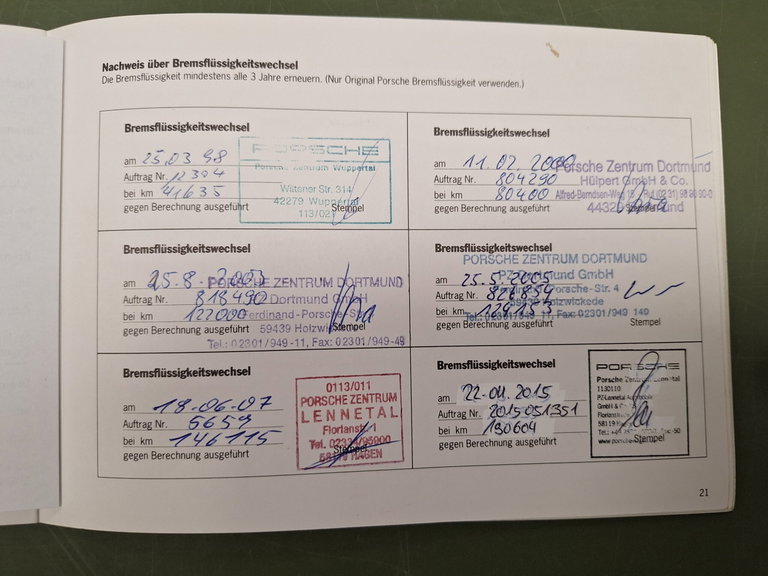 Nachweis über Bremsflüssigkeitswechsel
Die Bremsflüssigkeit mindestens alle 3 Jahre erneuern. (Nur Original Porsche Bremsflüssigkeit verwenden.)
Bremsflüssigkeitswechsel
am 25.03 98
Auftrag Nr. 12394
bei km 41635
gegen Berechnung ausgeführt
Stempel
PORSCHE
Porsche Zentrum Wuppertal
Wittener Str. 314
42279 Wuppertal
113/021
Bremsflüssigkeitswechsel
am 11.02.2000
Auftrag Nr. 804290
bei km 80400
gegen Berechnung ausgeführt
Stempel
Porsche Zentrum Dortmund
Hülpert GmbH & Co.
Alfred-Berndsen-Weg
Bremsflüssigkeitswechsel
am 25.8.2003
Auftrag Nr. 818490
bei km 122000
gegen Berechnung ausgeführt
Stempel
PORSCHE ZENTRUM DORTMUND
PZ Dortmund GmbH
Ferdinand-Porsche-Str.
59439 Holzwickede
Tel.: 02301/949-11, Fax: 02301/949-49
Bremsflüssigkeitswechsel
am 25.5.2005
Auftrag Nr. 826854
bei km
gegen Berechnung ausgeführt
Stempel
PORSCHE ZENTRUM DORTMUND
PZ Dortmund GmbH
Ferdinand-Porsche-Str. 4
59439 Holzwickede
Tel.: 02301/949 - 11, Fax: 02301/949 149
Bremsflüssigkeitswechsel
am 18-06-07
Auftrag Nr. 5659
bei km 146115
gegen Berechnung ausgeführt
Stempel
0113/011
PORSCHE ZENTRUM
LENNETAL
Florianstr. 1
Tel. 02334/95900
HAGEN
Bremsflüssigkeitswechsel
am 22.04.2015
Auftrag Nr. 2015051351
bei km 190604
gegen Berechnung ausgeführt
Stempel
PORSCHE
Porsche Zentrum Lennetal
1130110
PZ-Lennetal
GmbH & C
Florianstr
58119